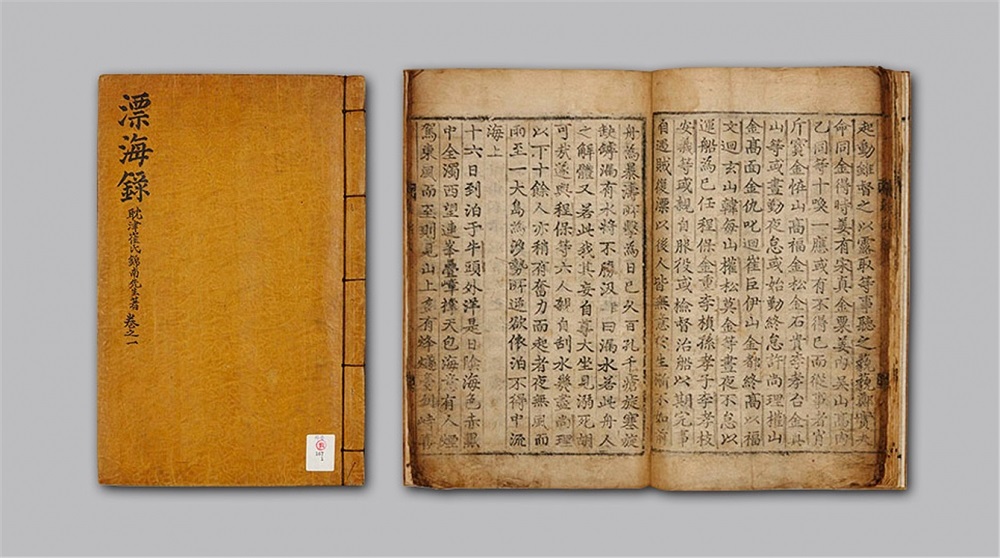 漂海錄
耽津崔氏錦南先生著
卷之一
起動雖督之以露取等事聽之藐藐鄭實夫
命同金得時姜有宋真金粟姜內吳山高內
乙同等十喚一應或有不得已而從事者肖
斤寶金怪山高福金松金石貴李孝台金斗
山等或晝勤夜怠或始勤終怠許尚理權山
金高面金仇叱迴崔巨伊山金都終高以福
文迴玄山韓每山權松莫金等晝夜不息以
運船為已任程保金重李楨孫孝子李孝枝
安義等或親自服役或檢督治船以期完事
自遇賊復漂以後人皆無意於生漸不如前
舟為暴濤所擊為日已久百孔千瘡旋塞旋
缺罅漏有水將不勝汲臣曰漏水若此舟人
之解體又若此我其妄自尊大坐見溺死胡
可哉遂與程保等六人親自刮水幾盡尚理
以下十餘人亦稍有奮力而起者夜無風而
雨至一大島為涉勢所迫欲依泊不得中流
海上
十六日到泊于牛頭外洋是日陰海色赤黑
中全濁西望連峯疊嶂撑天包海意有人煙
駕東風而至則見山上多有烽燧臺列峙喜